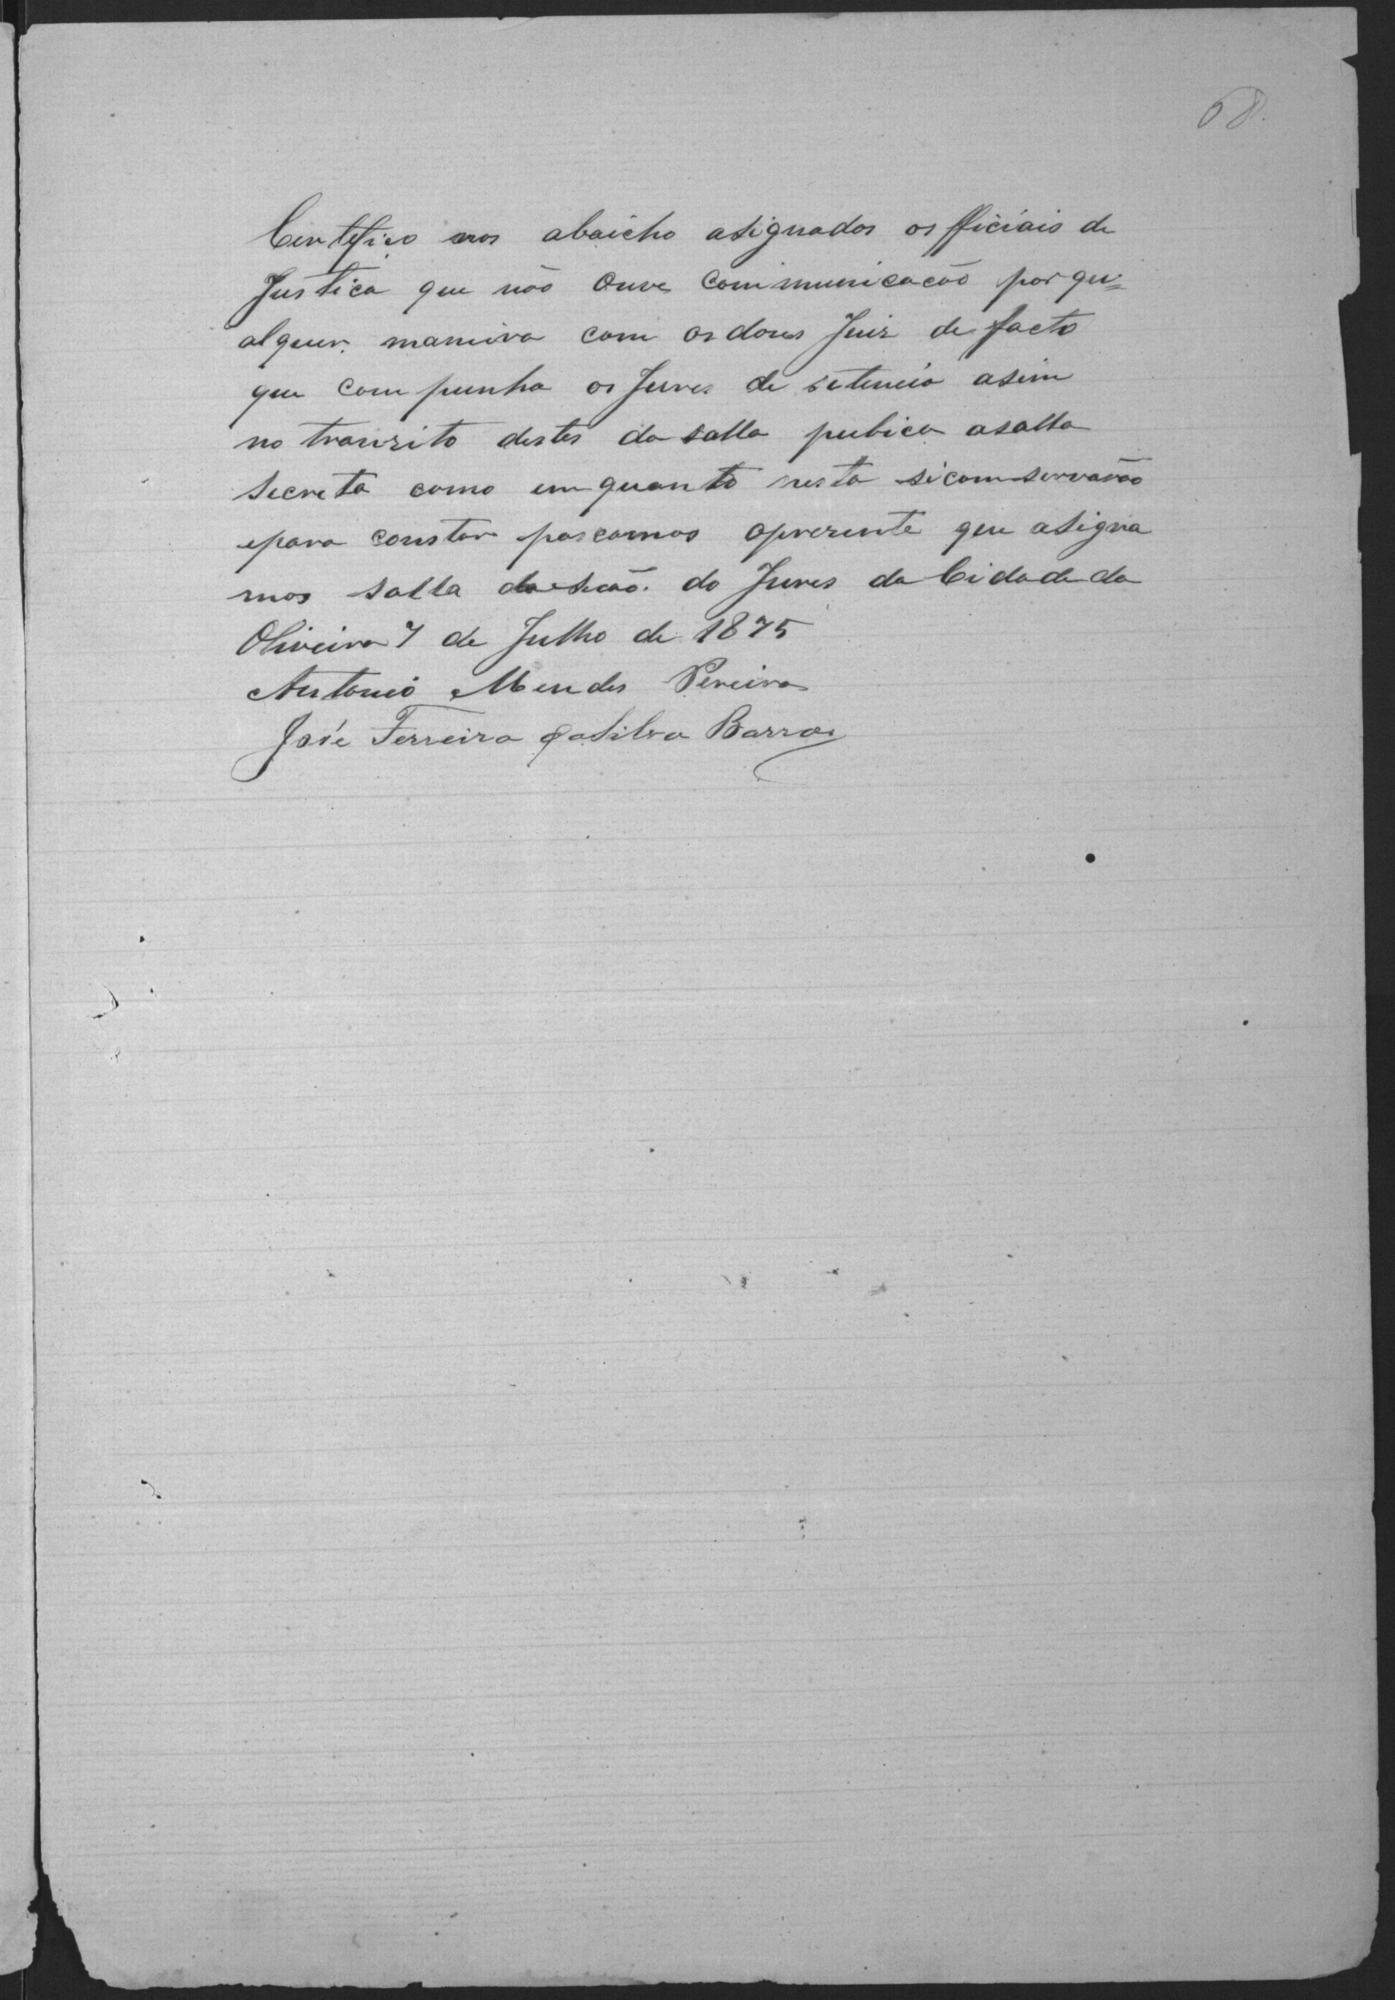 68.
Certefico nos abaicho asignados os fficiais de
Justica que não Ouve Communicacão por qu=
alquer maneira com os doses Juis de facto
que com punha os Jures de setencia asim
no tranzito destes da salla pubica asalla
Secreta como em quanto nesta si comservarão
epara constar pascamos oprezente que asigna
mos salla da Secão do Jures da Cidade da
Oliveira 7 de Julho de 1875
Antonio Mendes Pereira
José Ferreira da Silva Barros